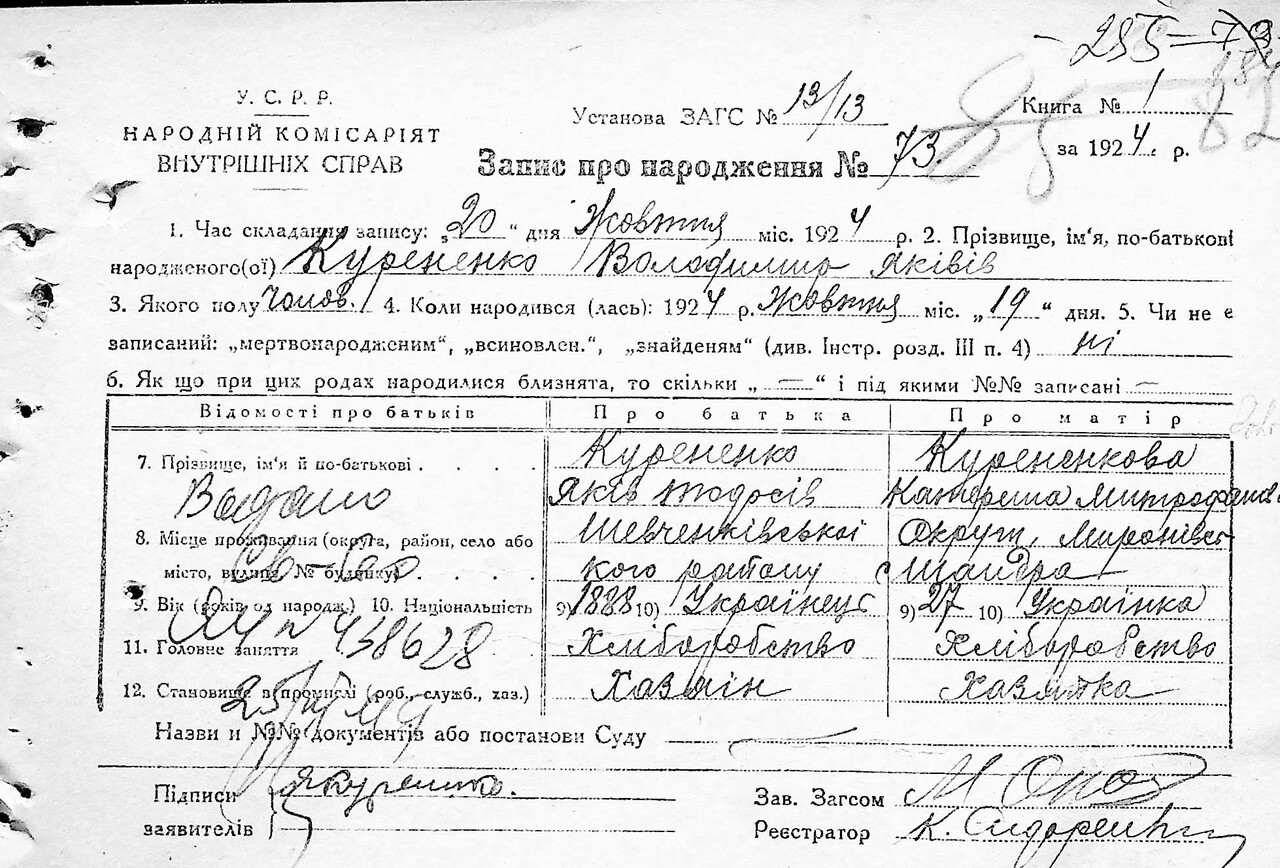 - 255 - 73
82
У. С. Р. Р.
НАРОДНІЙ КОМІСАРІЯТ
ВНУТРІШНІХ СПРАВ
Установа ЗАГС № 13/13
Книга № 1
Запис про народження № 73.
за 1924. р.
1. Час складання запису: „20“ дня Жовтня міс. 1924 р. 2. Прізвище, ім‘я, по-батькові
народженого(ої) Курененко Володимир Яківів
3. Якого полу Чолов. 4. Коли народився (лась): 1924 р. Жовтня міс. „19“ дня. 5. Чи не є
записаний: „мертвонародженим“, „всиновлен.“, „знайденям“ (див. Інстр. розд. III п. 4) ні
6. Як що при цих родах народилися близнята, то скільки „ — “ і під якими №№ записані —
Відомості про батьків Про батька Про матір
7. Прізвище, ім‘я й по-батькові . . . . Курененко Курененкова
Яків Тодосів Катерина
Видано
8. Місце проживання (округа, район, село або Шевченківської Округи, Миронівсь-
місто, вулиця, № будинку) . . . . кого району с
Св-во
9. Вік (років од народж.) 10. Національність 9) 1888 10) Українець 9) 27 10) Українка
ЯЧ № 458628
11. Головне заняття Хліборобство Хліборобство
12. Становище в промислі (роб., служб., хаз.) Хазяїн Хазяйка
Назви и №№ документів або постанови Суду —
Підписи
заявителів
Зав. Загсом
Реєстратор К. Сидоренко